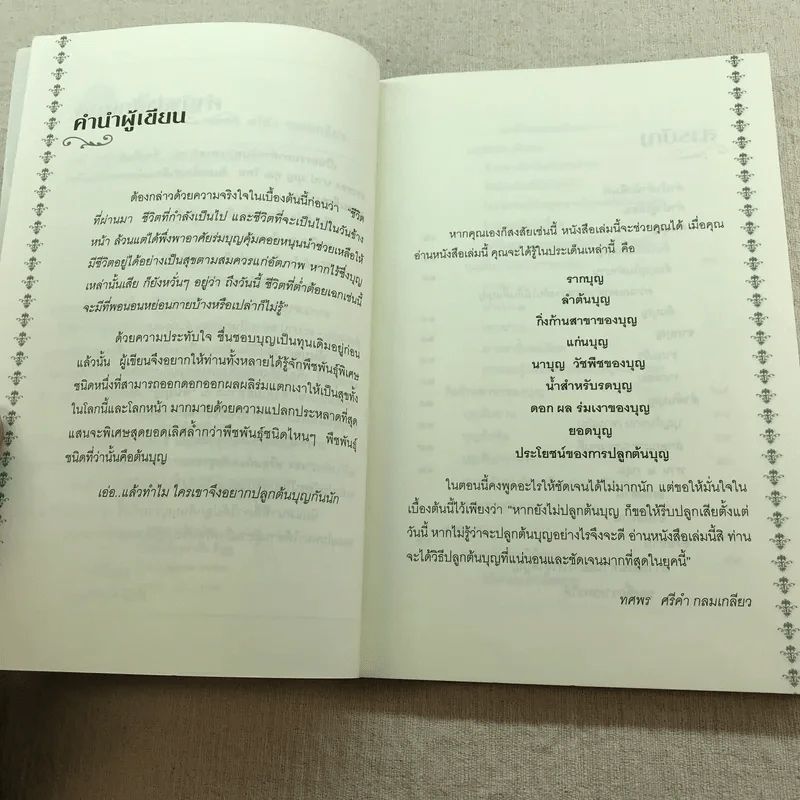 คำนำผู้เขียน
ต้องกล่าวด้วยความจริงใจในเบื้องต้นนี้ก่อนว่า “ชีวิต
ที่ผ่านมา ชีวิตที่กำลังเป็นไป และชีวิตที่จะเป็นไปในวันข้าง
หน้า ล้วนแต่ได้พึ่งพาอาศัยร่มบุญคุ้มคอยหนุนนำช่วยเหลือให้
มีชีวิตอยู่ได้อย่างเป็นสุขตามสมควรแก่อัตภาพ หากไร้ซึ่งบุญ
เหล่านั้นเสีย ก็ยังหวั่นๆ อยู่ว่า ถึงวันนี้ ชีวิตที่ต่ำต้อยเอกเช่นนี้
จะมีที่พอนอนหย่อนกายบ้างหรือเปล่าก็ไม่รู้”
ด้วยความประทับใจ ชื่นชอบบุญเป็นทุนเดิมอยู่ก่อน
แล้วนั้น ผู้เขียนจึงอยากให้ท่านทั้งหลายได้รู้จักพืชพันธุ์พิเศษ
ชนิดหนึ่งที่สามารถออกดอกออกผลผลิร่มแตกเงาให้เป็นสุขทั้ง
ในโลกนี้และโลกหน้า มากมายด้วยความแปลกประหลาดที่สุด
แสนจะพิเศษสุดยอดเลิศล้ำกว่าพืชพันธุ์ชนิดไหนๆ พืชพันธุ์
ชนิดที่ว่านั้นคือต้นบุญ
เอ่อ..แล้วทำไม ใครเขาจึงอยากปลูกต้นบุญกันนัก
หากคุณเองก็สงสัยเช่นนี้ หนังสือเล่มนี้จะช่วยคุณได้ เมื่อคุณ
อ่านหนังสือเล่มนี้ คุณจะได้รู้ในประเด็นเหล่านี้ คือ
รากบุญ
ลำต้นบุญ
กิ่งก้านสาขาของบุญ
แก่นบุญ
นาบุญ วัชพืชของบุญ
น้ำสำหรับรดบุญ
ดอก ผล ร่มเงาของบุญ
ยอดบุญ
ประโยชน์ของการปลูกต้นบุญ
ในตอนนี้คงพูดอะไรให้ชัดเจนได้ไม่มากนัก แต่ขอให้มั่นใจใน
เบื้องต้นนี้ไว้เพียงว่า “หากยังไม่ปลูกต้นบุญ ก็ขอให้รีบปลูกเสียตั้งแต่
วันนี้ หากไม่รู้ว่าจะปลูกต้นบุญอย่างไรจึงจะดี อ่านหนังสือเล่มนี้สิ ท่าน
จะได้วิธีปลูกต้นบุญที่แน่นอนและชัดเจนมากที่สุดในยุคนี้”
ทศพร ศรีคำ กลมเกลียว